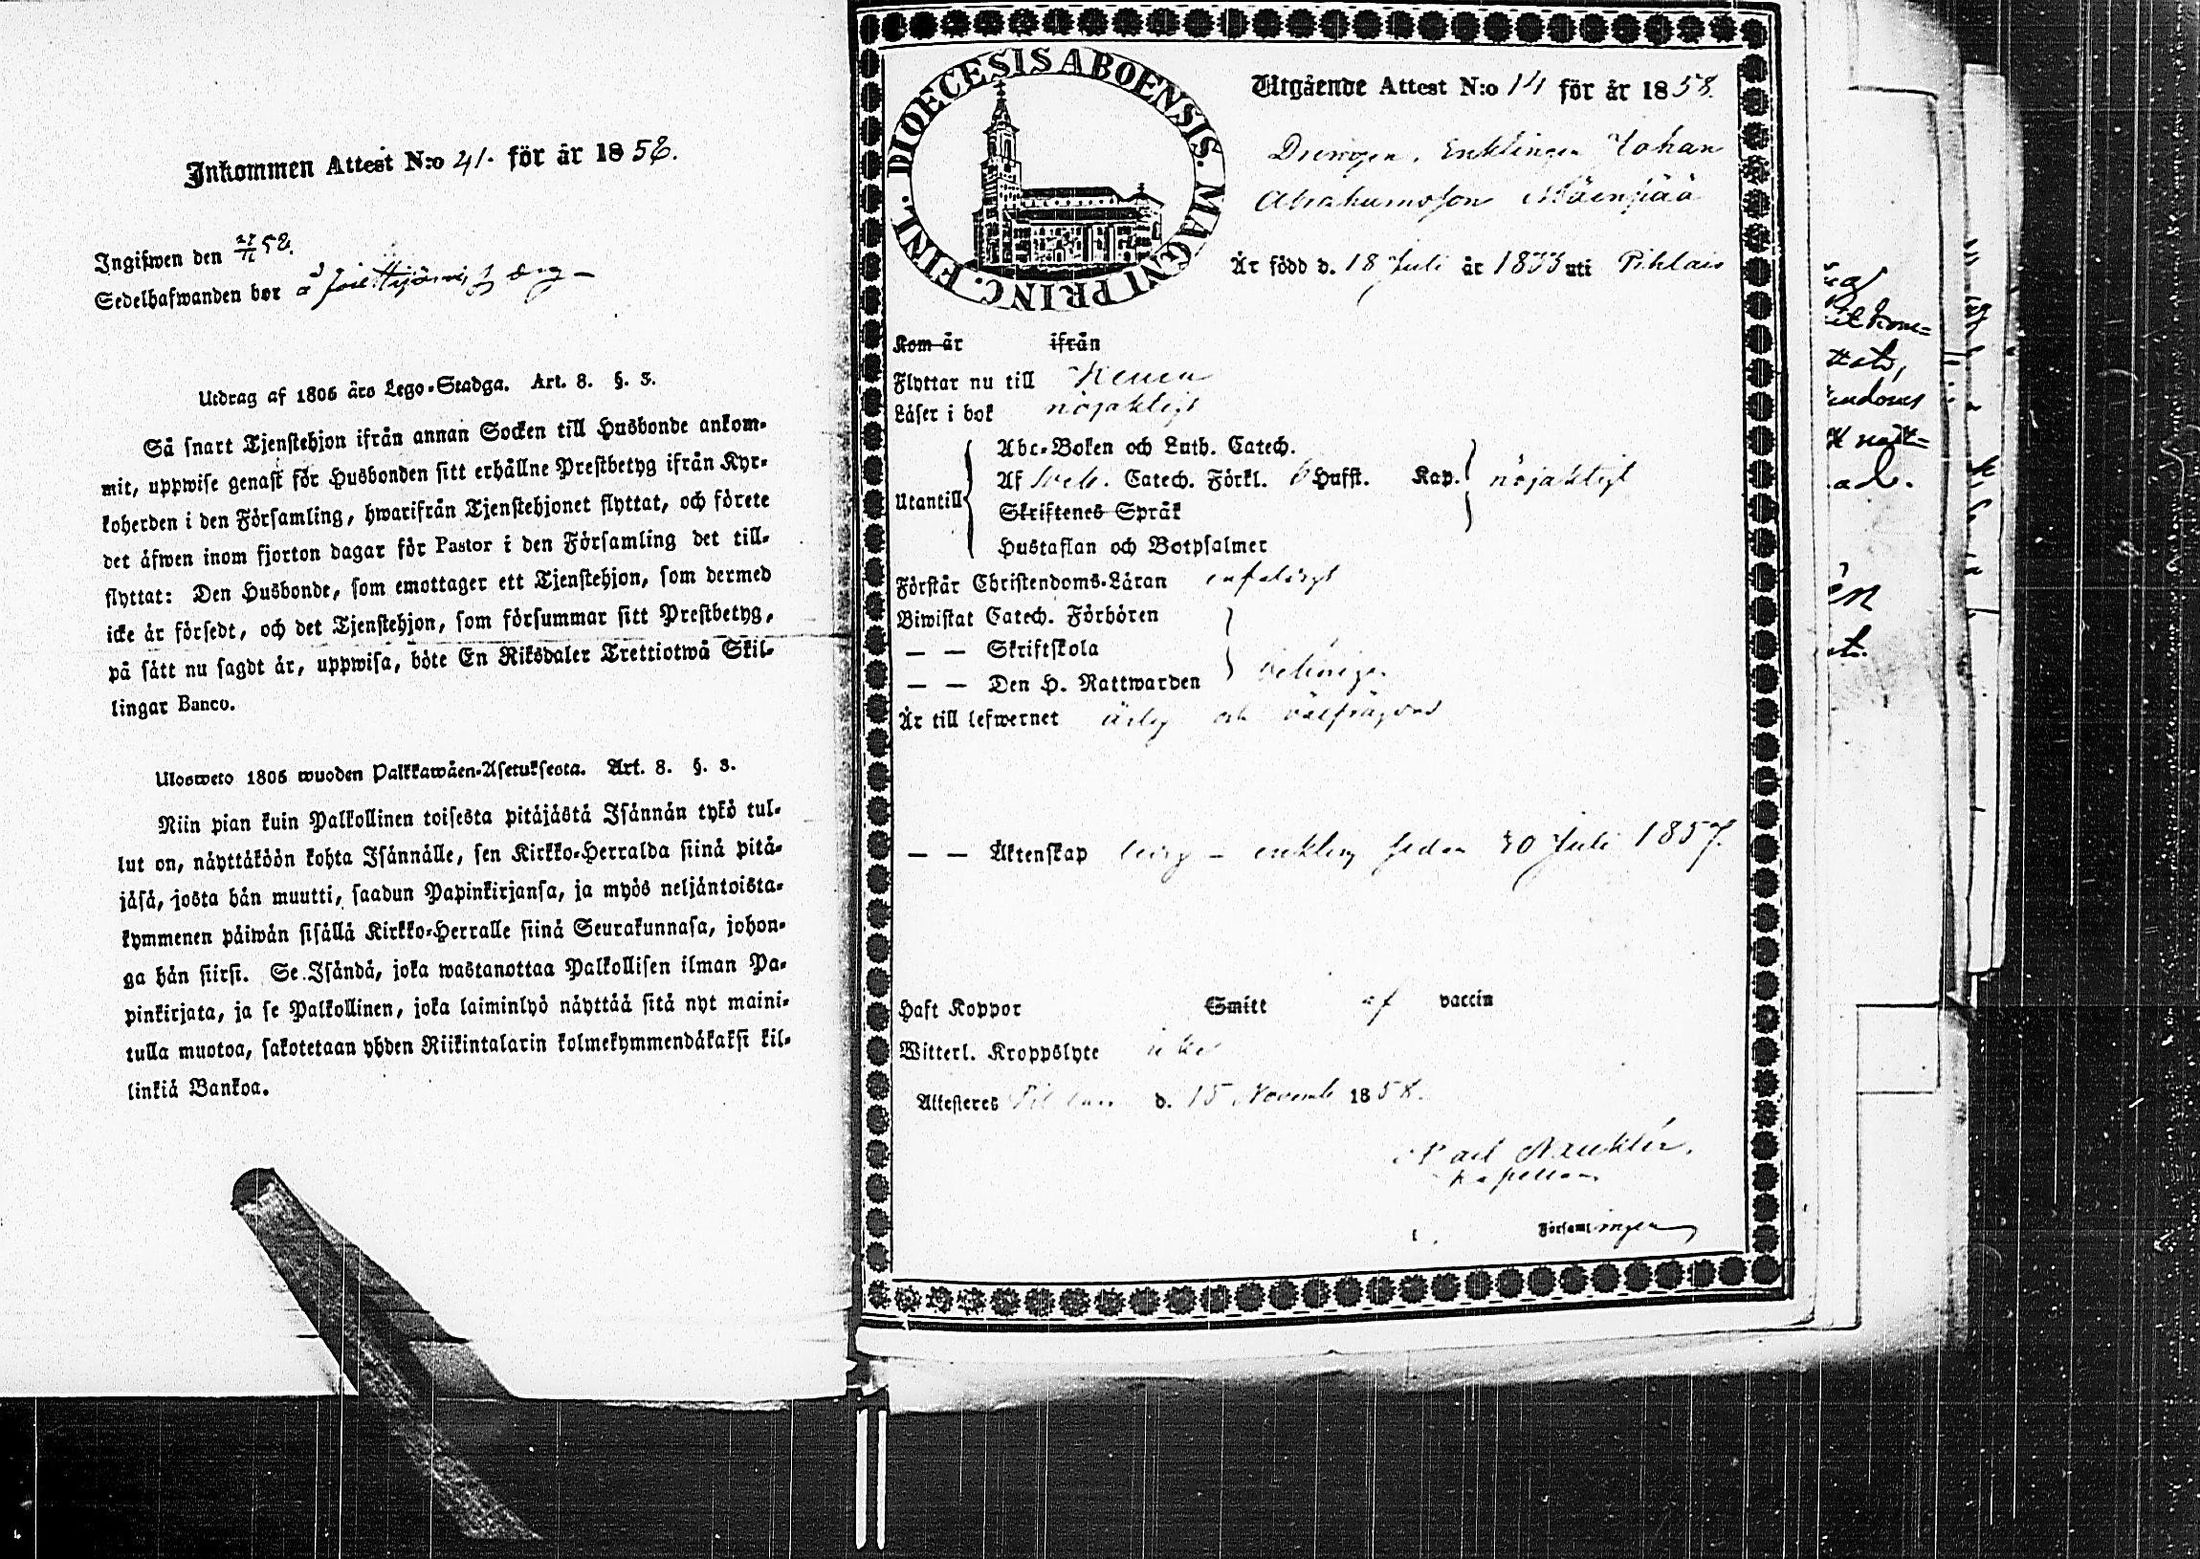 Inkommen Attest N:o 41. för år 1858.
Ingifwen den 27/11 58.
Sedelhafwanden bor å
Utdrag af 1805 års Lego-Stadga. Art. 8. §. 3.
Så snart Tjenstehjon ifrån annan Socken till Husbonde ankom-
mit, uppwise genast för Husbonden sitt erhållne Prestbetyg ifrån Kyr-
koherden i den Församling, hwarifrån Tjenstehjonet flyttat, och förete
det äfwen inom fjorton dagar för Pastor i den Församling det till-
flyttat: Den Husbonde, som emottager ett Tjenstehjon, som dermed
icke är försedt, och det Tjenstehjon, som försummar sitt Prestbetyg,
på sätt nu sagdt är, uppwisa, böte En Riksdaler Trettiotwå Skil-
lingar Banco.
Ulosweto 1805 wuoden Palkkawäen-Asetuksesta. Art. 8. §. 3.
Niin pian kuin Palkollinen toisesta pitäjästä Isännän tykö tul-
lut on, näyttäköön kohta Isännälle, sen Kirkko-Herralda siinä pitä-
jäsä, josta hän muutti, saadun Papinkirjansa, ja myös neljäntoista-
kymmenen päiwän sisällä Kirkko-Herralle siinä Seurakunnasa, johon-
ga hän siirsi. Se Isändä, joka wastanottaa Palkollisen ilman Pa-
pinkirjata, ja se Palkollinen, joka laiminlyö näyttää sitä nyt maini-
tulla muotoa, sakotetaan yhden Riikintalarin kolmekymmendäkaksi kil-
linkiä Bankoa.
DIOECESIS ABOENSIS. MAGNI PRINC. FINL.
Utgående Attest N:o 14 för år 1858.
Drengen, Enklingen Johan
Abrahamsson Mäenpää
Är född d. 18 Juli år 1833 uti Pihlais
Kom år ifrån
Flyttar nu till
Läser i bok nöjaktigt
Abc-Boken och Luth. Catech.
Af Sveb. Catech. Förkl. 6 Hufst. Kap. nöjaktigt
Utantill
Skriftenes Språk
Hustaflan och Botpsalmer
Förstår Christendoms-Läran enfaldigt
Biwistat Catech. Förhören
— — Skriftskola
— — Den H. Nattwarden
Är till lefwernet ärlig och välfrägdad
— — Äktenskap ledig - enkling sedan 20 Juli 1857.
Haft Koppor Smitt af vaccin
Witterl. Kroppslyte icke
Attesteres d. 15 Novemb 1858.
Kapellan
Församlingen